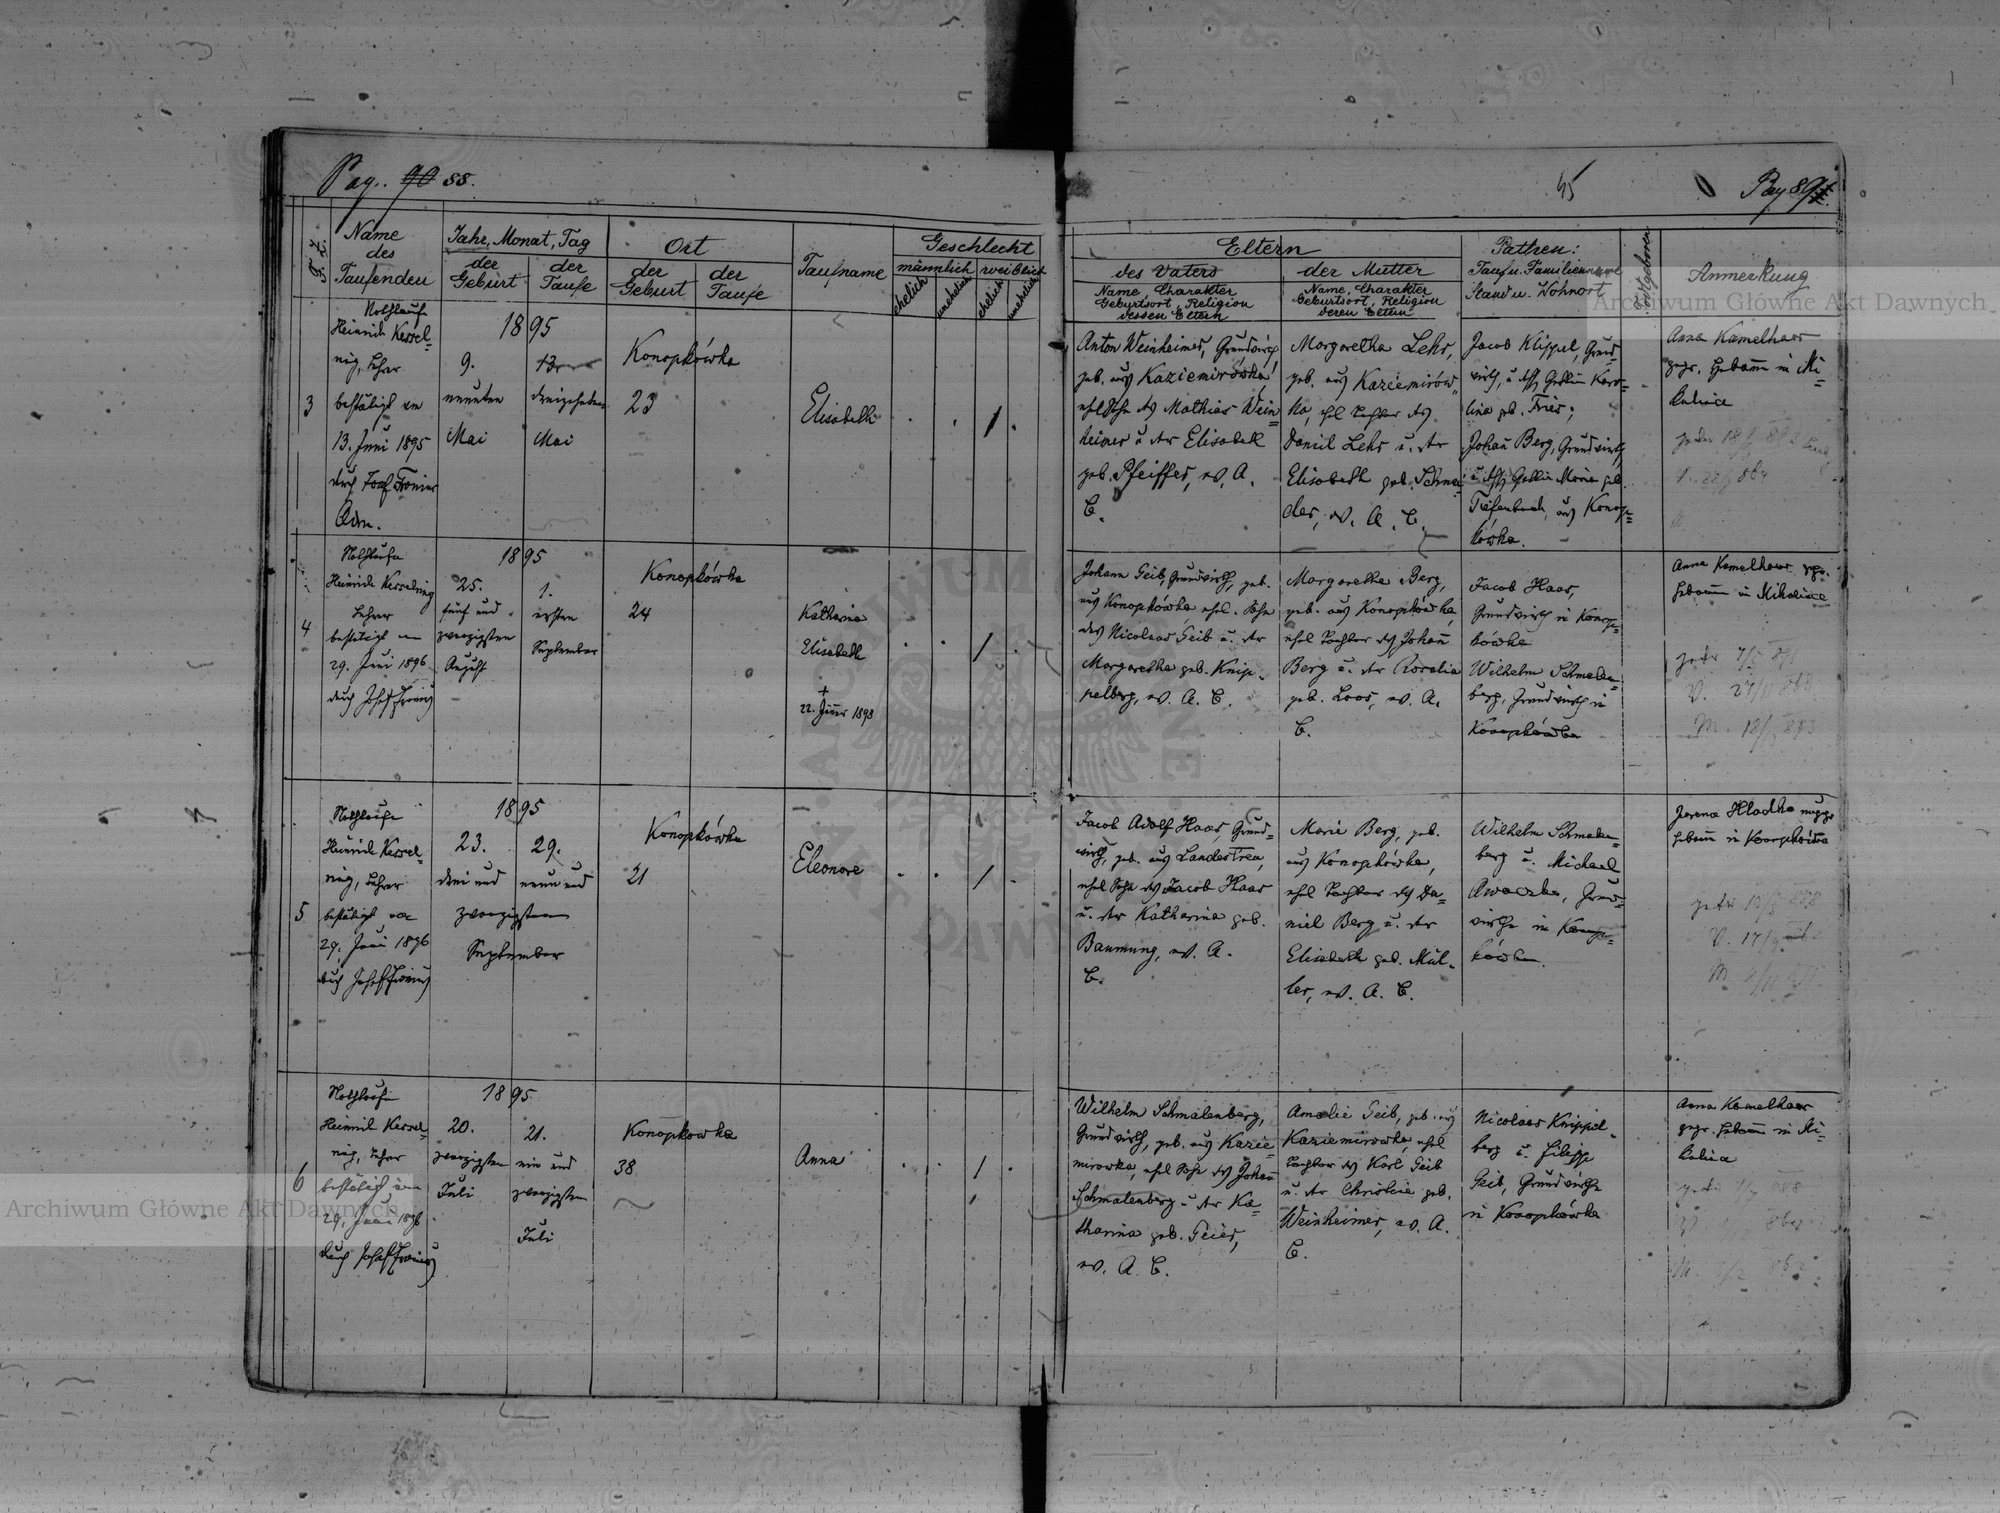 Pag. 90 88.
45
Pag 89
Name
des
Taufenden
Jahr, Monat, Tag
der
Geburt
der
Taufe
Ort
der
Geburt
der
Taufe
Taufname
Geschlecht
männlich
weiblich
ehelich
unehelich
ehelich
unehelich
Eltern
des Vaters
Name, Charakter
Geburtsort, Religion
dessen Eltern
der Mutter
Name, Charakter
Geburtsort, Religion
deren Eltern
Pathen:
Tauf u. Familienname
Stand u. Wohnort
Anmerkung
Archiwum Główne Akt Dawnych
3
Nothtaufe
Heinrich Kessel=
ring, Lehrer
bestätigt am
13. Juni 1895
durch Josef Fronius
Adm.
1895
9.
neunten
Mai
13
dreizehnten
Mai
Konopkówka
23
Elisabeth
Anton Weinheimer, Grundwirth
geb. aus Kaziemirówka,
ehel Sohn des Mathias Wein=
heimer u. der Elisabeth
geb. Pfeiffer, ev. A.
C.
Margaretha Lehr,
geb. aus Kaziemirów=
ka, ehel Tochter des
Daniel Lehr u. der
Elisabeth geb. Schnei=
der, ev. A. C.
Jacob Klippel, Grund=
wirth, u. dess Gattin Karo=
lina geb. Fries;
Johañ Berg, Grundwirth
u. dess Gattin Maria geb.
Tiefenbach, aus Konop=
kówka.
Anna Kamelhaar
gepr. Hebamme in Mi=
kulince
4
Nothtaufe
Heinrich Kesselring
Lehrer
bestätigt am
29. Juni 1896
durch Josef Fronius
1895
25.
fünf und
zwanzigsten
August
1.
ersten
September
Konopkówka
24
Katharina
Elisabeth
+
22. Jäner 1898
Johann Geib, Grundwirth, geb.
aus Konopkówka, ehel. Sohn
des Nicolaus Geib u. der
Margaretha geb. Knip=
pelberg, ev. A. C.
Margaretha Berg,
geb. aus Konopkówka,
ehel Tochter des Johañ
Berg u. der Rosalia
geb. Loos, ev. A.
C.
Jacob Haas,
Grundwirth in Konop=
kówka
Wilhelm Schmalen=
berg, Grundwirth in
Konopkówka
Anna Kamelhaar gepr.
Hebamme in Mikulince
5
Nothtaufe
Heinrich Kessel=
ring, Lehrer
bestätigt am
29. Juni 1896
durch Josef Fronius
1895
23.
drei und
29.
neun und
zwanzigsten
September
Konopkówka
21
Eleonore
Jacob Adolf Haas, Grund=
wirth, geb. aus Landestreu,
ehel Sohn des Jacob Haas
u. der Katharina geb.
Baumung, ev. A.
C.
Marie Berg, geb.
aus Konopkówka,
ehel Tochter des Da=
niel Berg u. der
Elisabeth geb. Mül=
ler, ev. A. C.
Wilhelm Schmalen=
berg u. Michael
Grund=
wirthe in Konop=
kówka.
Hladka
Hebamme in Konopkówka
6
Nothtaufe
Heinrich Kessel=
ring, Lehrer
bestätigt am
29. Juni 1896
durch Josef Fronius
1895
20.
zwanzigsten
Juli
21.
ein und
zwanzigsten
Juli
Konopkowka
38
Anna
Wilhelm Schmalenberg,
Grundwirth, geb. aus Kazie=
mirowka, ehel Sohn des Johañ
Schmalenberg u. der Ka=
tharina geb. Geier,
ev. A. C.
Amalie Geib, geb. aus
Kaziemirowka, ehel
Tochter des Karl Geib
u. der Christine geb.
Weinheimer, ev. A.
C.
Nicolaus Knippel=
berg u. Filipp
Geib, Grundwirthe
in Konopkówka
Anna Kamelhaar
gepr. Hebamme in Mi=
kulince
Archiwum Główne Akt Dawnych